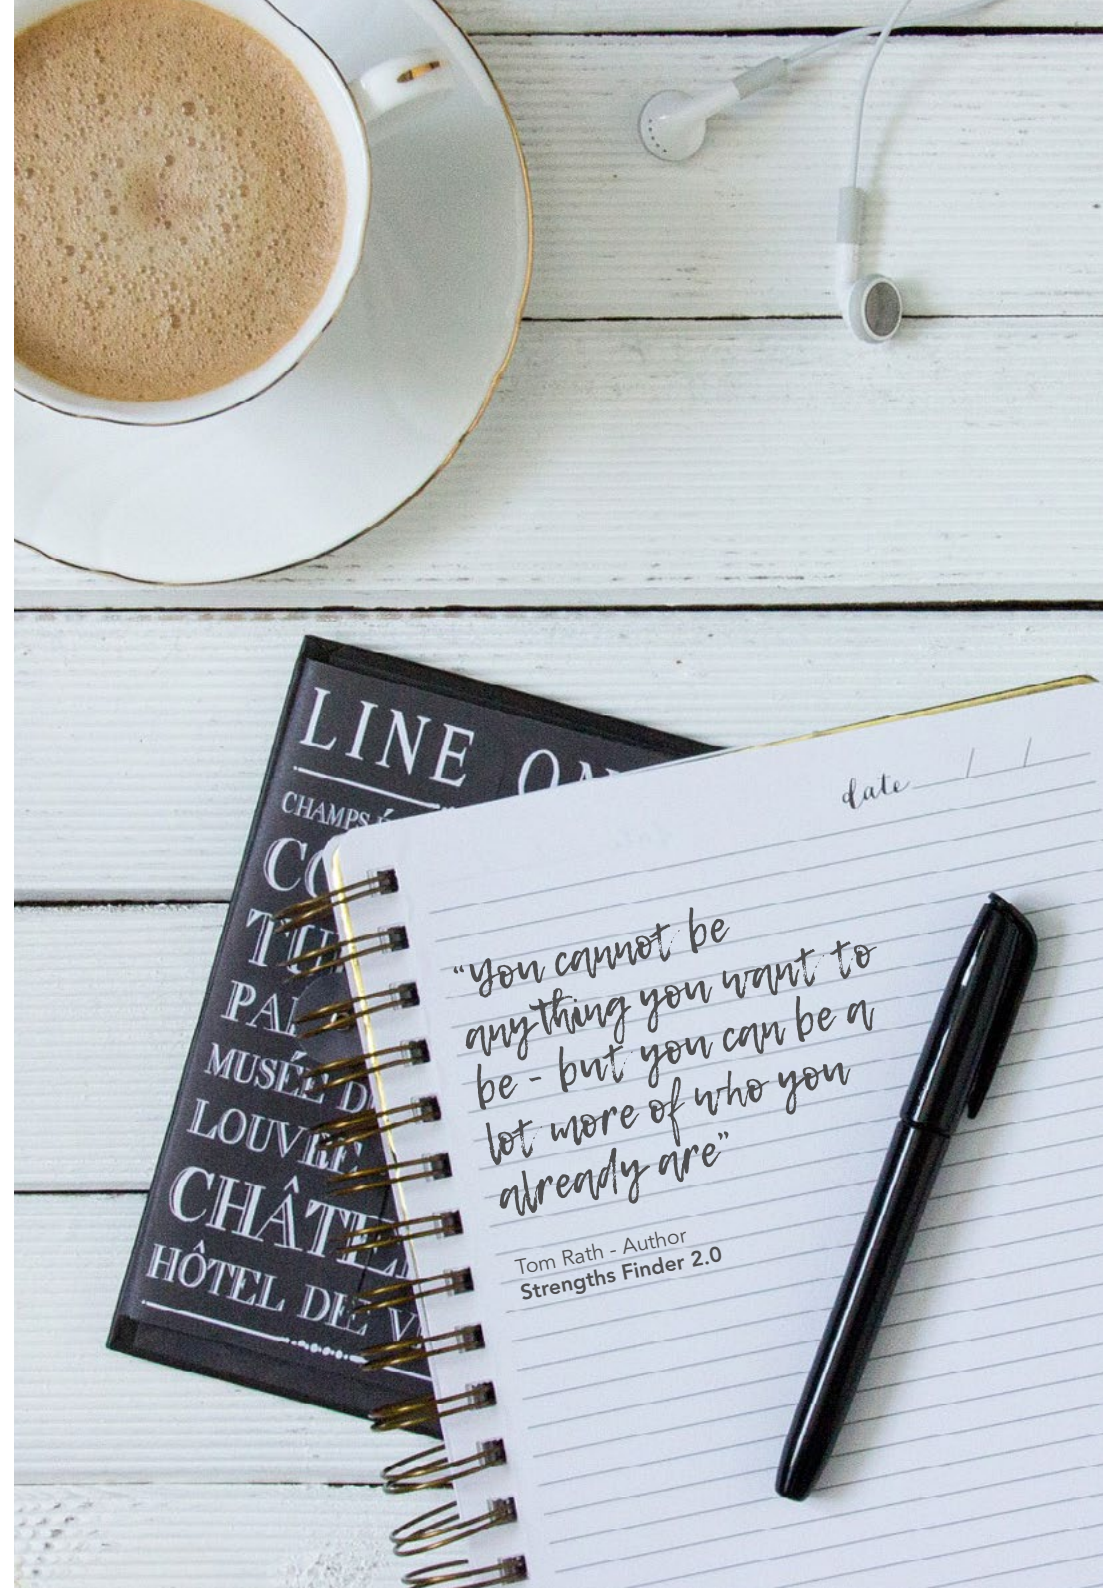 LINE
CHAMPS
TU
MUSÉE D
LOUVRE
CHÂTEL
HÔTEL DE V
date
“you cannot be
anything you want to
be - but you can be a
lot more of who you
already are”
Tom Rath - Author
Strengths Finder 2.0